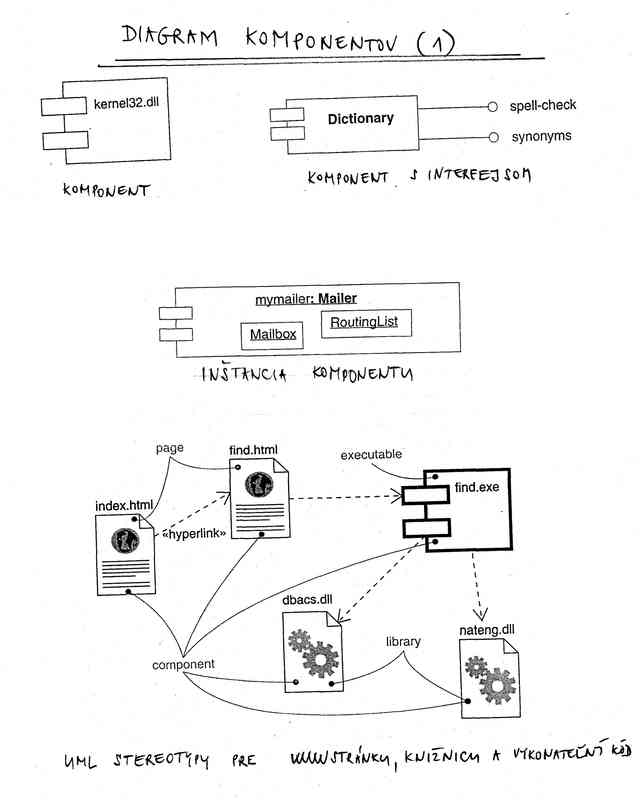 DIAGRAM KOMPONENTOV (1)
kernel32.dll
KOMPONENT
Dictionary
spell-check
synonyms
KOMPONENT S INTERFEJSOM
mymailer: Mailer
Mailbox
RoutingList
INŠTANCIA KOMPONENTU
page
find.html
executable
index.html
find.exe
«hyperlink»
dbacs.dll
nateng.dll
library
component
UML STEREOTYPY PRE WWW STRÁNKU, KNIŽNICU A VYKONATEĽNÝ KÓD